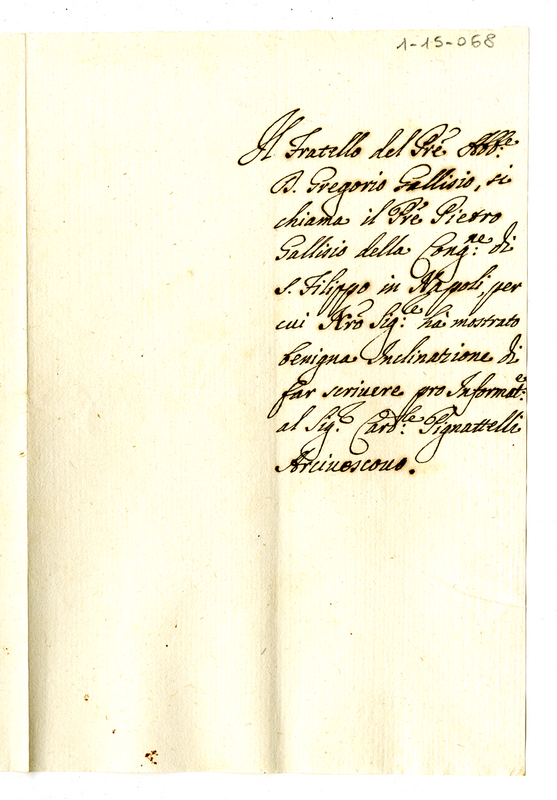 1-15-068
Il Fratello del Pre Abbe:
D. Gregorio Gallisio, si
chiama il Pre Pietro
Gallisio della Congne: di
S. Filippo in Napoli, per
cui Nro Sige: ha mostrato
benigna Inclinazione di
far scrivere pro Informate:
al Sigr. Cardle: Pignattelli
Arcivescovo.